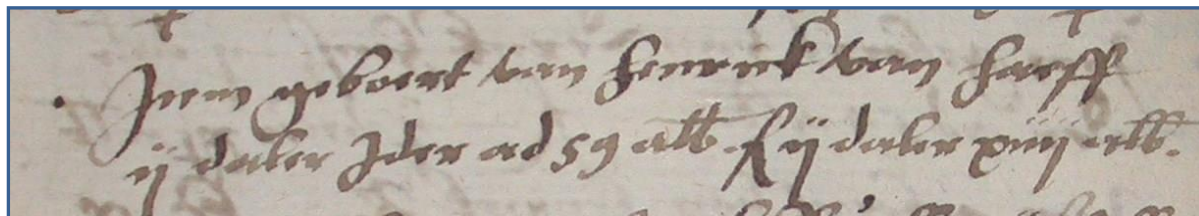 Item geboert van henrick van harff
ij daler Ider ad 59 alb. f ij daler xiiij alb.